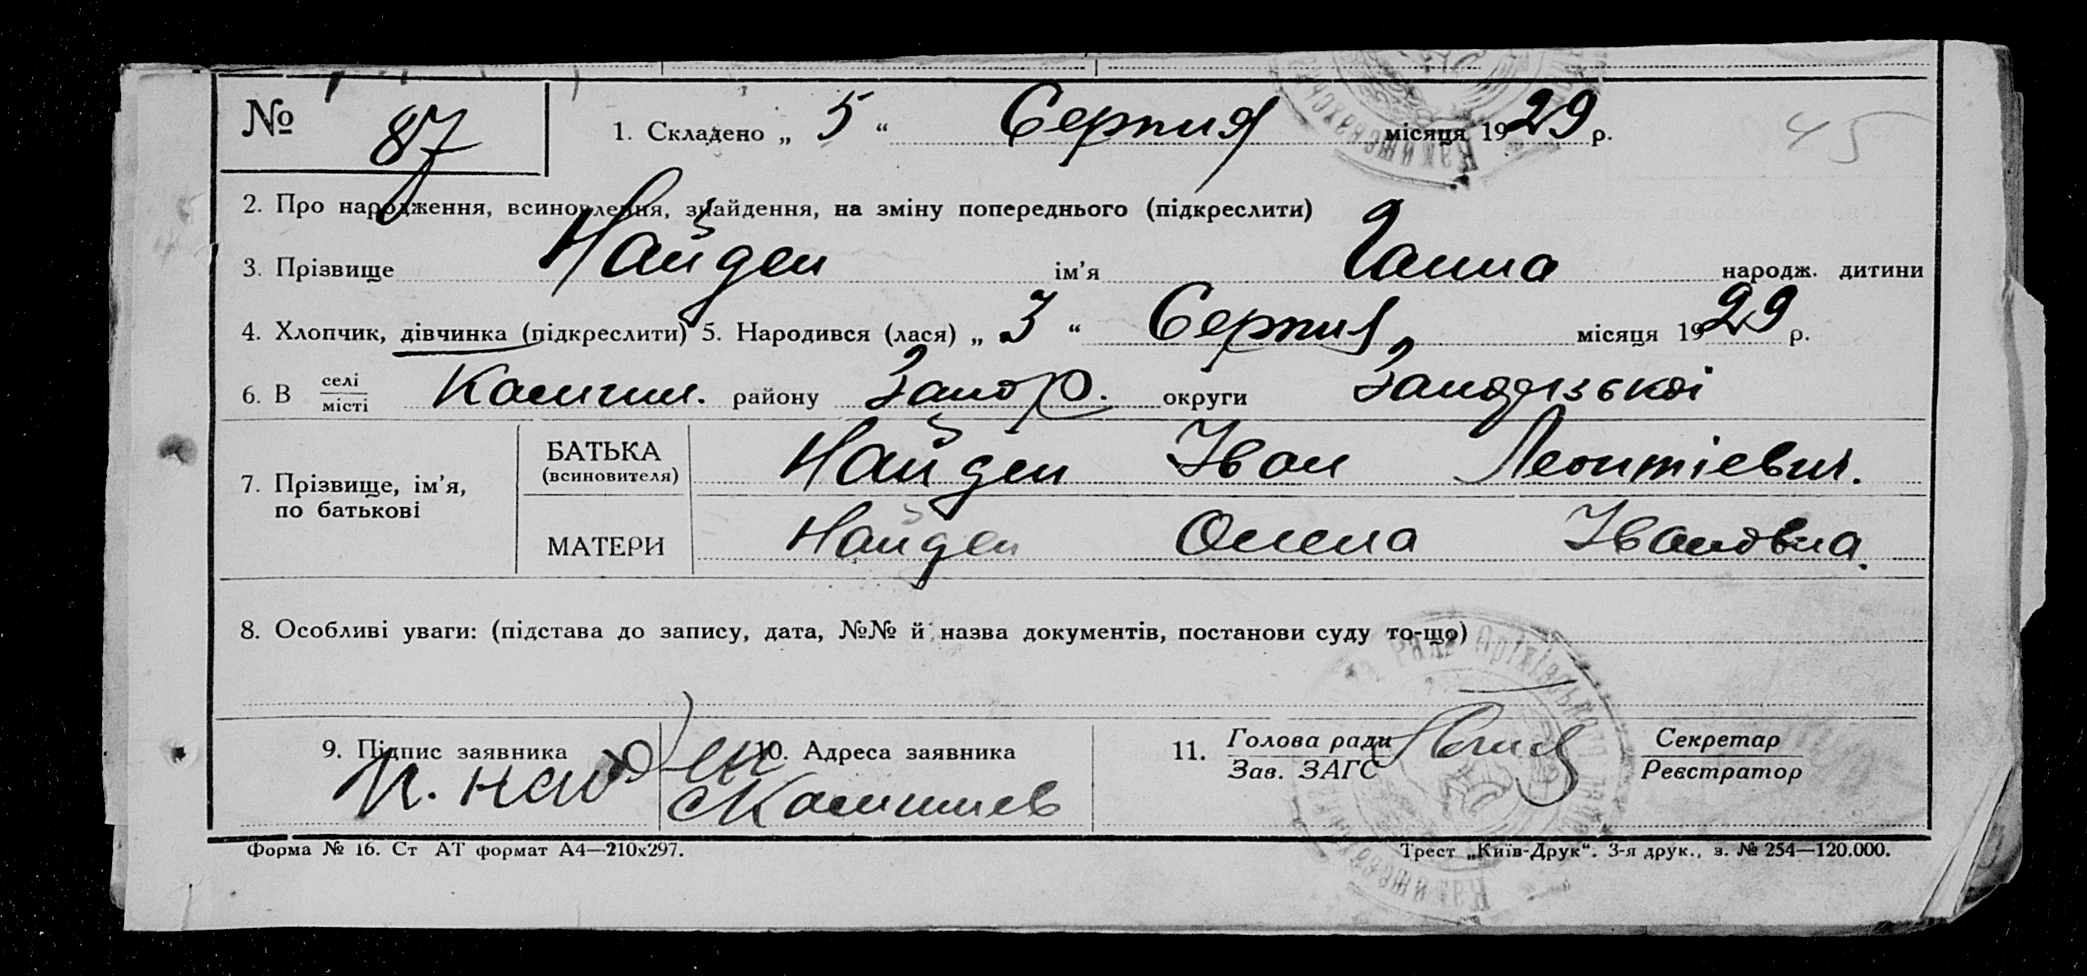 № 87
1. Складено „ 5 “ Серпня місяця 1929 р.
45
2. Про народження, всиновлення, знайдення, на зміну попереднього (підкреслити)
3. Прізвище Найден ім'я Ганна народж. дитини
4. Хлопчик, дівчинка (підкреслити) 5. Народився (лася) „ 3 “ Серпня місяця 1929 р.
6. В селі
місті
району Запор. округи
7. Прізвище, ім'я,
по батькові
БАТЬКА
(всиновителя)
Найден Іван Леонтіевич.
МАТЕРИ Найден Олена Івановна
8. Особливі уваги: (підстава до запису, дата, №№ й назва документів, постанови суду то-що)
Рада Оріхівського
9. Підпис заявника 10. Адреса заявника 11. Голова ради
Зав. ЗАГС
Секретар
Реєстратор
Форма № 16. Ст АТ формат А4—210х297. Трест „Київ-Друк“. 3-я друк., з. № 254—120.000.